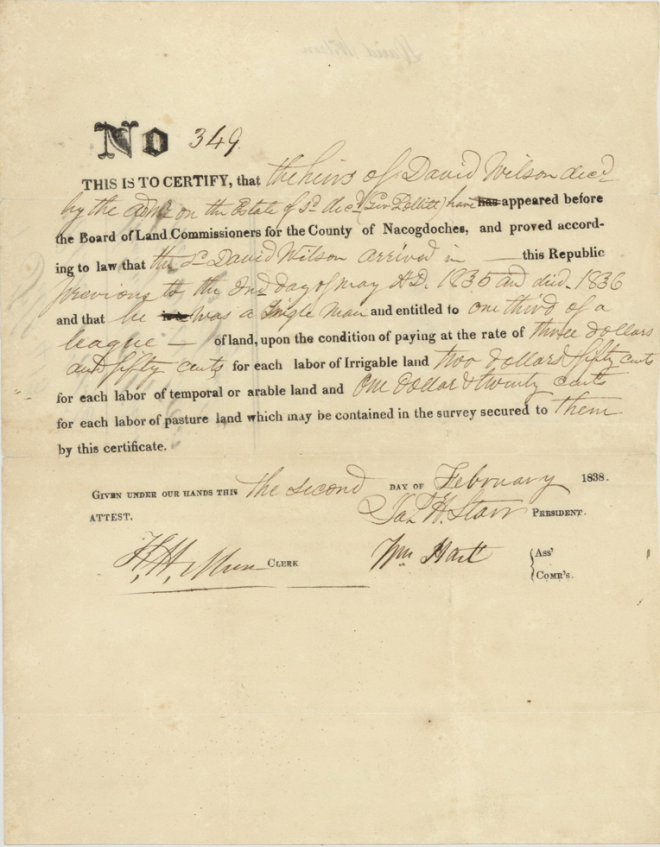 No 349
THIS IS TO CERTIFY, that the heirs of David Wilson decd
by the Admr on the Estate of sd decd (Geo Pollitt) have has appeared before
the Board of Land Commissioners for the County of Nacogdoches, and proved accord-
ing to law that the sd David Wilson arrived in — this Republic
previous to the 2nd day of May A.D. 1835 and died 1836
and that he is a was a Single Man and entitled to one third of a
league — of land, upon the condition of paying at the rate of three dollars
and fifty cents for each labor of Irrigable land two dollars & fifty cents
for each labor of temporal or arable land and One dollar & twenty cents
for each labor of pasture land which may be contained in the survey secured to them
by this certificate.
GIVEN UNDER OUR HANDS THIS the second DAY OF February 1838.
ATTEST. Jas H. Starr PRESIDENT.
H. H. CLERK Wm Hart { Ass'
Comr's.